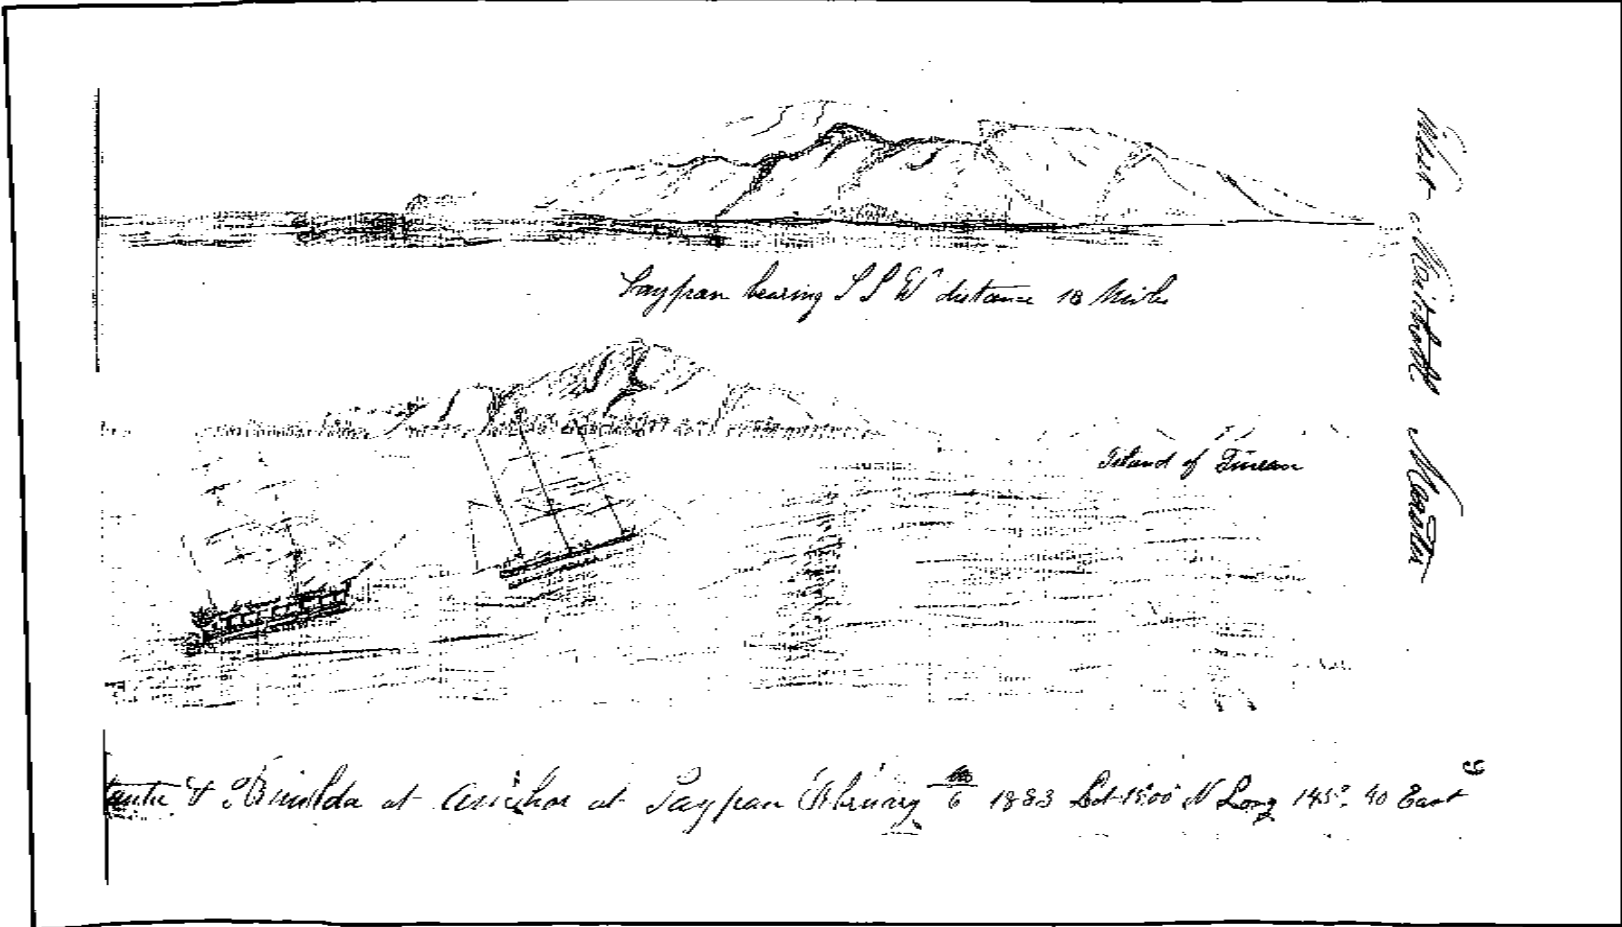 Saypan bearing S S W distance 18 Miles
Island of Tinean
& at anchor at Saypan February 6 1833 Lat 15.00 N Long 145°. 40 East
Master